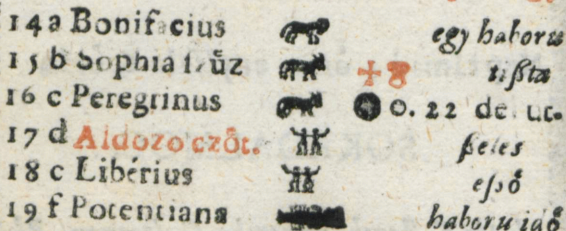 14 a Bonifacius egy haboru
15 b Sophia ſzűz tiſzta
16 c Peregrinus 0. 22 de. ut.
17 d Aldozo czőt. ſzeles
18 c Libérius eſső
19 f Potentiana haboru idő